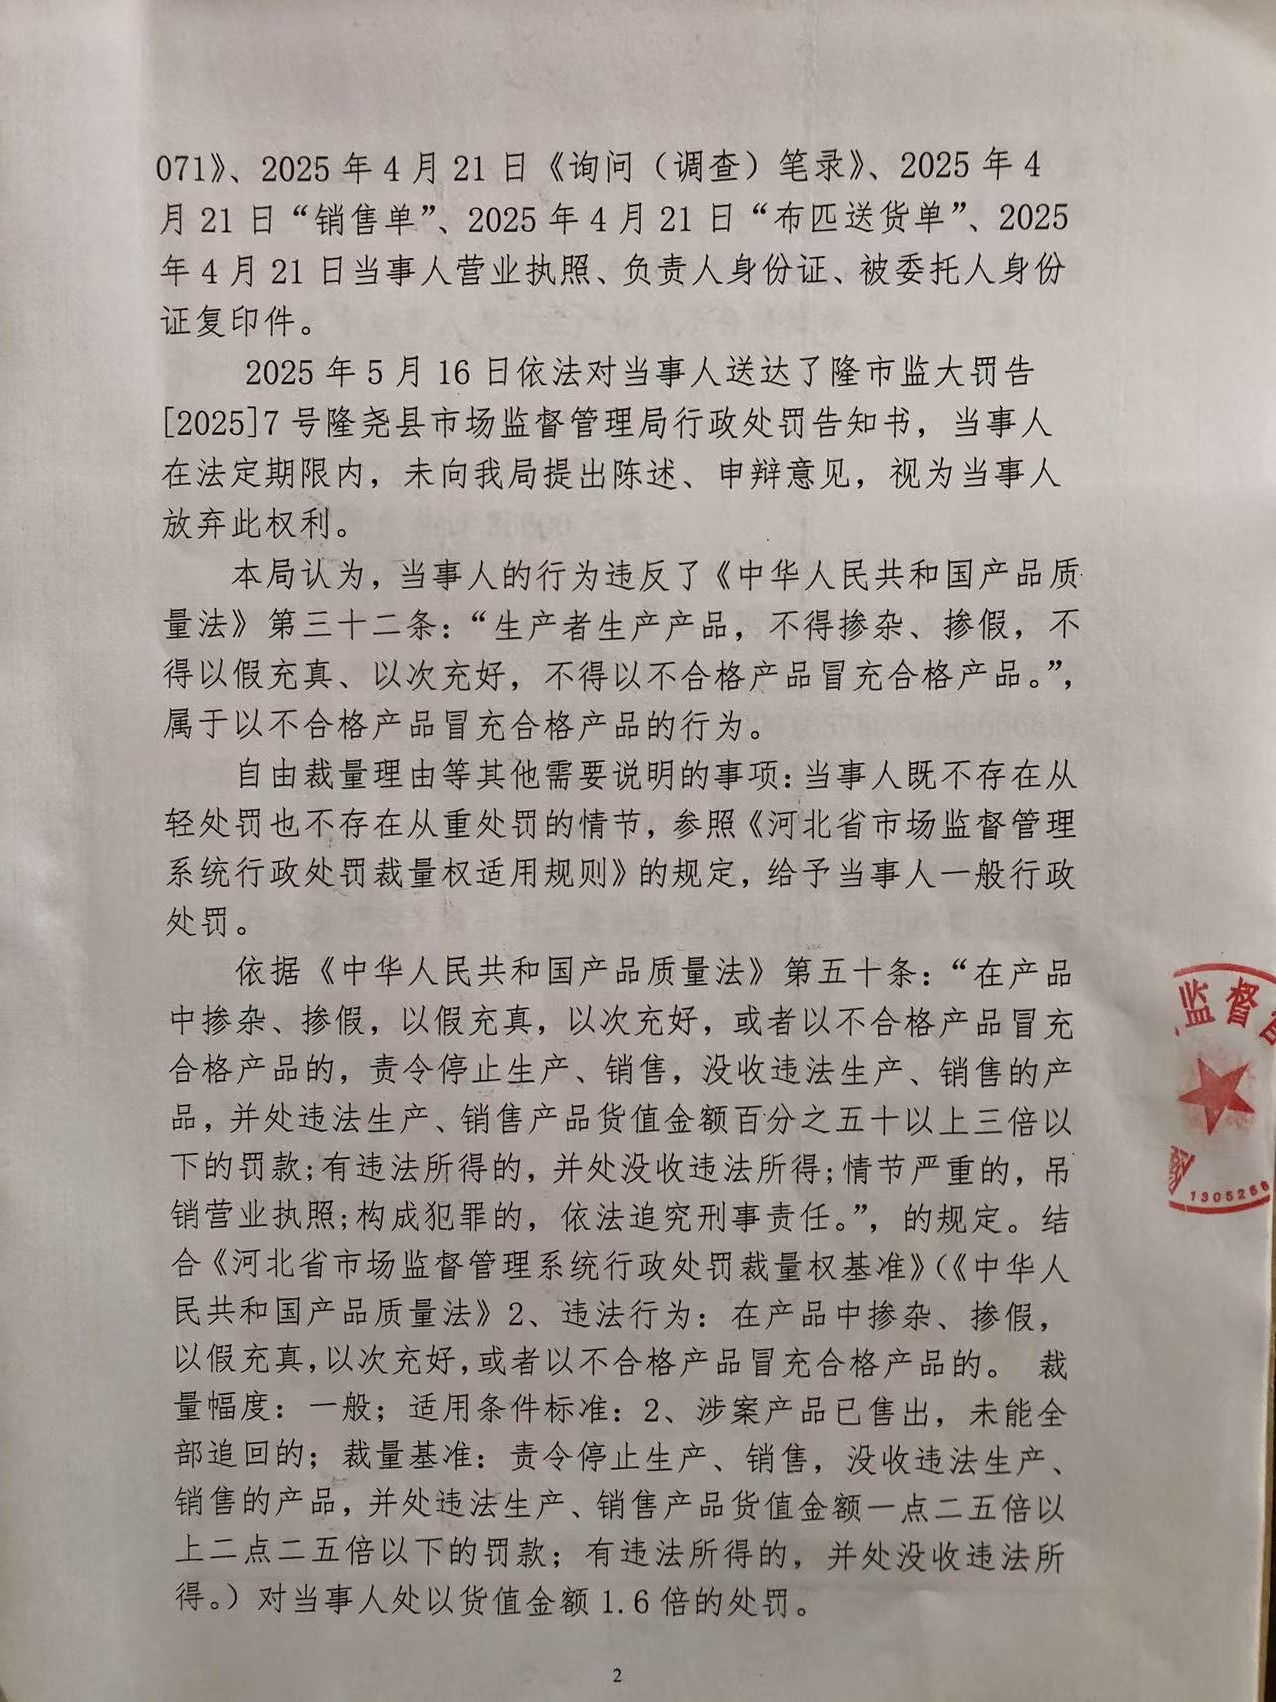 071》、2025年4月21日《询问（调查）笔录》、2025年4
月21日“销售单”、2025年4月21日“布匹送货单”、2025
年4月21日当事人营业执照、负责人身份证、被委托人身份
证复印件。
2025年5月16日依法对当事人送达了隆市监大罚告
[2025]7号隆尧县市场监督管理局行政处罚告知书，当事人
在法定期限内，未向我局提出陈述、申辩意见，视为当事人
放弃此权利。
本局认为，当事人的行为违反了《中华人民共和国产品质
量法》第三十二条：“生产者生产产品，不得掺杂、掺假，不
得以假充真、以次充好，不得以不合格产品冒充合格产品。”，
属于以不合格产品冒充合格产品的行为。
自由裁量理由等其他需要说明的事项：当事人既不存在从
轻处罚也不存在从重处罚的情节，参照《河北省市场监督管理
系统行政处罚裁量权适用规则》的规定，给予当事人一般行政
处罚。
依据《中华人民共和国产品质量法》第五十条：“在产品
中掺杂、掺假，以假充真，以次充好，或者以不合格产品冒充
合格产品的，责令停止生产、销售，没收违法生产、销售的产
品，并处违法生产、销售产品货值金额百分之五十以上三倍以
下的罚款；有违法所得的，并处没收违法所得；情节严重的，吊
销营业执照；构成犯罪的，依法追究刑事责任。”，的规定。结
合《河北省市场监督管理系统行政处罚裁量权基准》（《中华人
民共和国产品质量法》2、违法行为：在产品中掺杂、掺假，
以假充真，以次充好，或者以不合格产品冒充合格产品的。 裁
量幅度：一般；适用条件标准：2、涉案产品已售出，未能全
部追回的；裁量基准：责令停止生产、销售，没收违法生产、
销售的产品，并处违法生产、销售产品货值金额一点二五倍以
上二点二五倍以下的罚款；有违法所得的，并处没收违法所
得。）对当事人处以货值金额1.6倍的处罚。
监督
1305256
2